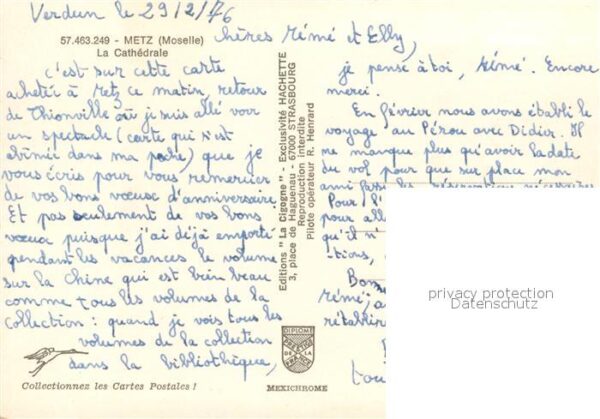 Verdun le 29/2/76
57.463.249 - METZ (Moselle)
La Cathédrale
chères Mémé et Elly,
c'est sur cette carte
achetée à Metz ce matin, retour
de Thionville où je suis allé voir
un spectacle (carte qui s'est
abîmée dans ma poche) que je
vous écris pour vous remercier
de vos bons voeux d'anniversaire.
Et pas seulement de vos bons
voeux puisque j'ai déjà emporté
pendant les vacances le volume
sur la Chine qui est bien beau
comme tous les volumes de la
collection : quand je vois tous les
volumes de la collection
dans la bibliothèque,
je pense à toi, Mémé. Encore
merci.
En février nous avons établi le
voyage au Pérou avec Didier. Il
ne manque plus qu'avoir la date
du vol pour que sur place mon
ami fasse les réservations
Pour l'
pour all
qu'il n'
tions,
Bonn
Mémé, a
rétablir
tou
Editions "La Cigogne" - Exclusivité HACHETTE
3, place de Haguenau - 67000 STRASBOURG
Reproduction interdite
Pilote opérateur R. Henrard
privacy protection
Datenschutz
DIPLOME
PRESTIGE
DE LA
FRANCE
Collectionnez les Cartes Postales !
MEXICHROME